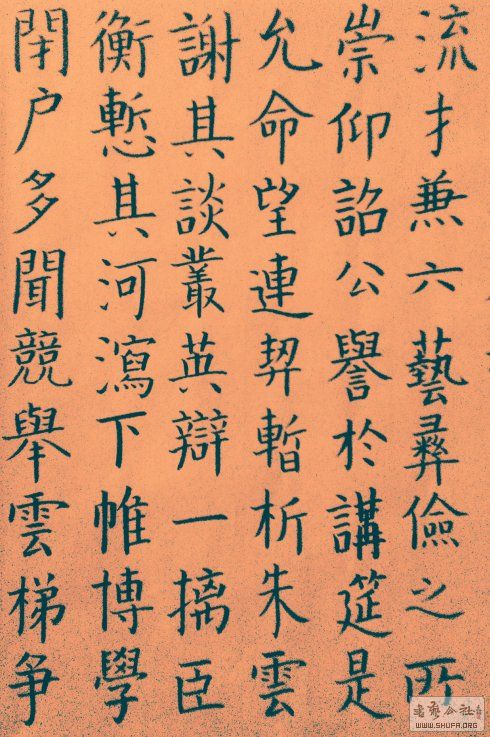 流才兼六藝彛倫之所
崇仰詔公譽於講筵是
允命望連契暫析朱雲
謝其談叢英辯一摛臣
衡慙其河瀉下帷博學
閇户多聞競舉雲梯争
WWW.SHUFA.ORG